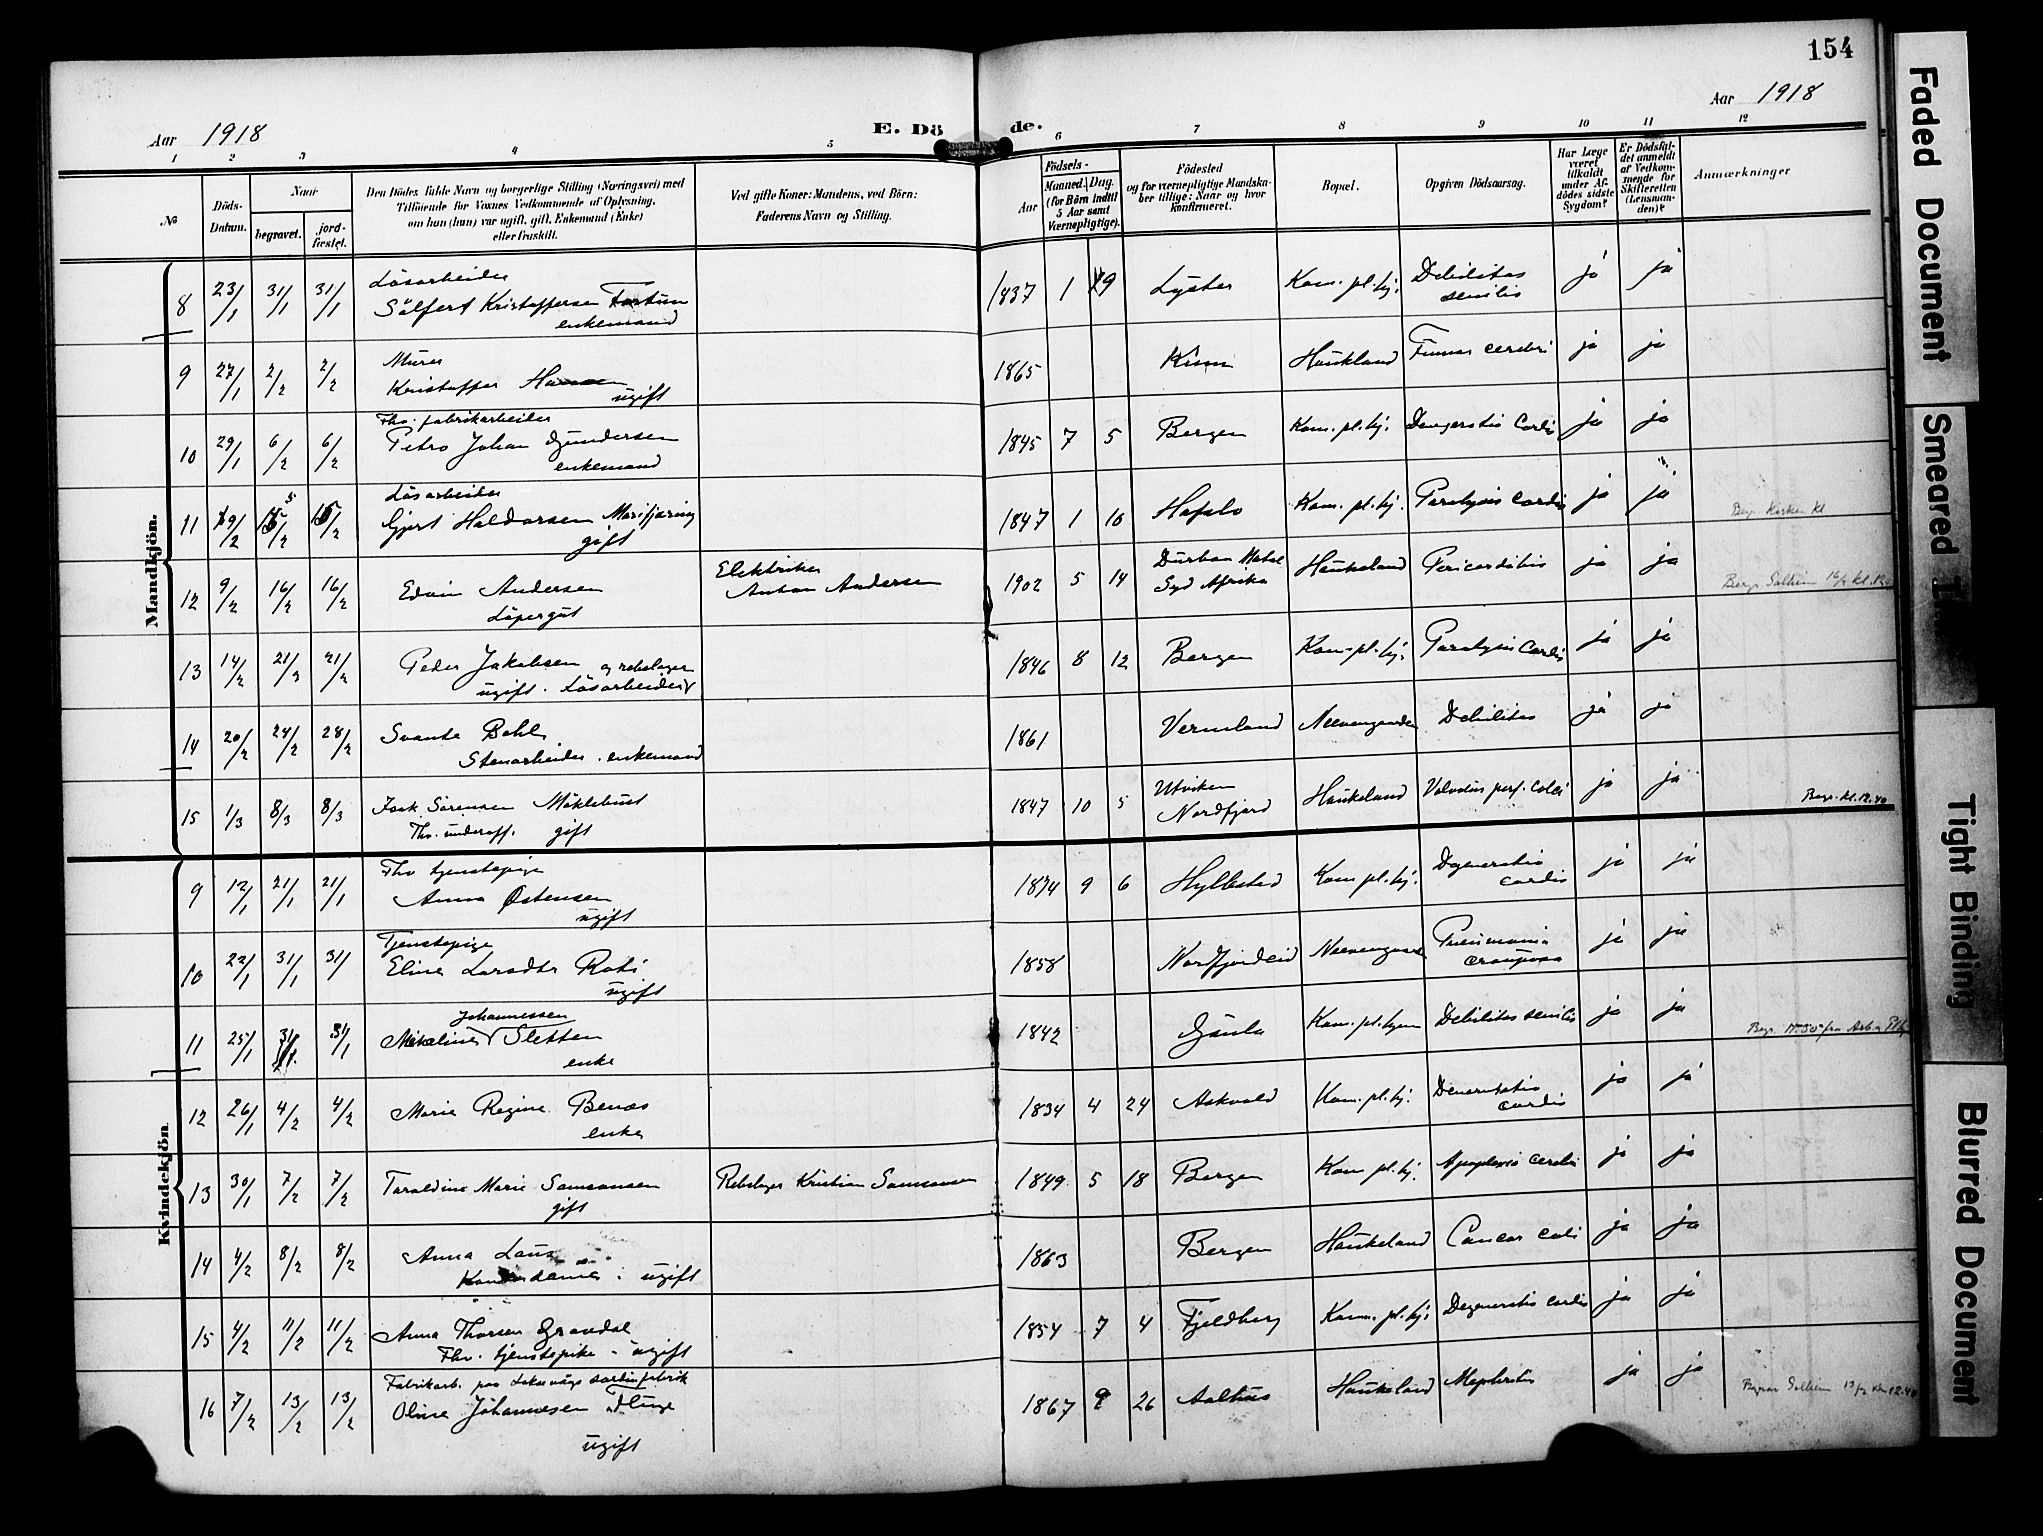 154
Aar 1918
E. Dö de.
Aar 1918
1 2 3 4 5 6 7 8 9 10 11 12
No
Döds-Datum.
Naar
begravet.
jord-fæstet.
Den Dödes fulde Navn og borgerlige Stilling (Næringsvei) med
Tilföiende for Voxnes Vedkommende af Oplysning,
om han (hun) var ugift, gift, Enkemand (Enke)
eller fraskilt.
Ved gifte Koner: Mandens, ved Börn:
Faderens Navn og Stilling.
Födsels-
Aar
Maaned. Dag.
(for Börn indtil
5 Aar samt
Værnepligtige).
Födested
og for værnepligtige Mandska-
ber tillige: Naar og hvor
konfirmeret.
Bopæl.
Opgiven Dödsaarsag.
Har Læge
været
tilkaldt
under Af-
dödes sidste
Sygdom?
Er Dödsfal-
det anmeldt
af Vedkom-
mende for
Skifteretten
(Lensman-
den)?
Anmærkninger
Mandkjön.
8 23/1 31/1 31/1 Lösarbeider
Sölfert Kristoffersen Fortun
enkemand
1837 1 19 Lyster Kom. pl. hj. Debilitas
senilis ja ja
9 27/1 2/2 2/2 Murer
Kristoffer Hansen
ugift
1865 Kinn Haukland cerebri ja ja
10 29/1 6/2 6/2 Fhv. fabrikarbeider
Petro Johan Gundersen
enkemand
1845 7 5 Bergen Kom. pl. hj. Cordis ja ja
11 9/2 15/2 15/2 Lösarbeider
Gjert Haldorsen Marifjæring
gift
1847 1 10 Hafslo Kom. pl. hj. Paralysis Cordis ja ja Begr. Kirken Kl
12 9/2 16/2 16/2 Edvin Andersen
Löpergut
Elektriker
Anton Andersen
1902 5 14 Durban Natal
Syd Afrika Haukeland Pericarditis ja ja Begr. Solheim 16/2 Kl. 12
13 14/2 21/2 21/2 Peder Jakobsen og rebslager
ugift. Lösarbeider
1846 8 12 Bergen Kom. pl. hj. Paralysis Cordis ja ja
14 20/2 28/2 28/2 Svante Bohl
Stenarbeider. enkemand
1861 Vermland Neevengaarden Debilitas ja ja
15 1/3 8/3 8/3 Isak Sörensen Möklebust
Fhv. underoff. gift
1847 10 5 Utviken
Nordfjord Haukeland Volvulus perf. Coli ja ja Begr. kl. 12.40
Kvindekjön
9 12/1 21/1 21/1 Fhv tjenstepige
Anna Østensen
ugift
1874 9 6 Hyllestad Kom pl. hj. Degeneratio
cordis ja ja
10 22/1 31/1 31/ Tjenstepige
Eline Larsdtr Roti
ugift
1858 Nordfjordeid Neevengaarden Pneumonia
crouposa ja ja
11 25/1 31/1 31/1 Johannessen
Mikaline Sletten
enke
1842 Gaula Kom. pl. hjem Debilitas senilis ja ja
12 26/1 4/2 4/2 Marie Regine Benæs
enke
1834 4 24 Askvold Kom. pl. hj. Degeneratio
cordis ja ja
13 30/1 7/2 7/2 Taraldine Marie Samsonsen
gift
Rebslager Kristian Samsonsen
1849 5 18 Bergen Kom pl. hj. Apoplexia cerebri ja ja
14 4/2 8/2 8/2 Anna
ugift
1863 Bergen Haukeland Cancer coli ja ja
15 4/2 11/2 11/2 Anna Thorsen Grøndal
Fhv. tjenstepike. ugift
1854 7 4 Fjeldberg Kom. pl. hj. Degeneratio Cordis ja ja
16 7/2 13/2 13/2 Fabrikarb. paa Laksevågs sardinfabrik
Oline Johannesen Fluge
ugift
1867 9 26 Aalhus Haukeland Nephritis ja ja Solheim 13/2 Kl. 12.40
Faded Document
Smeared
Tight Binding
Blurred Document